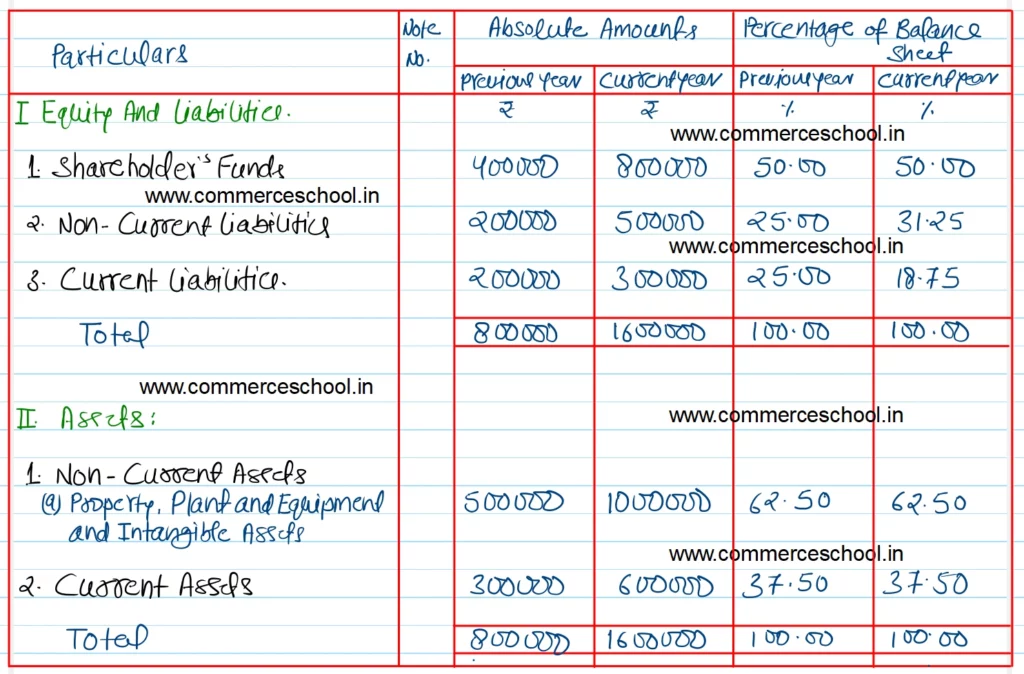 Particulars Note No. Absolute Amounts Percentage of Balance Sheet
Previous Year Current year Previous year Current year
I Equity And Liabilities. ₹ ₹ % %
www.commerceschool.in
1. Shareholder's Funds 400000 800000 50.00 50.00
www.commerceschool.in
2. Non-Current Liabilities 200000 500000 25.00 31.25
www.commerceschool.in
3. Current Liabilities. 200000 300000 25.00 18.75
Total 800000 1600000 100.00 100.00
www.commerceschool.in
www.commerceschool.in
II. Assets:
1. Non-Current Assets
(a) Property, Plant and Equipment 500000 1000000 62.50 62.50
and Intangible Assets
www.commerceschool.in
2. Current Assets 300000 600000 37.50 37.50
Total 800000 1600000 100.00 100.00